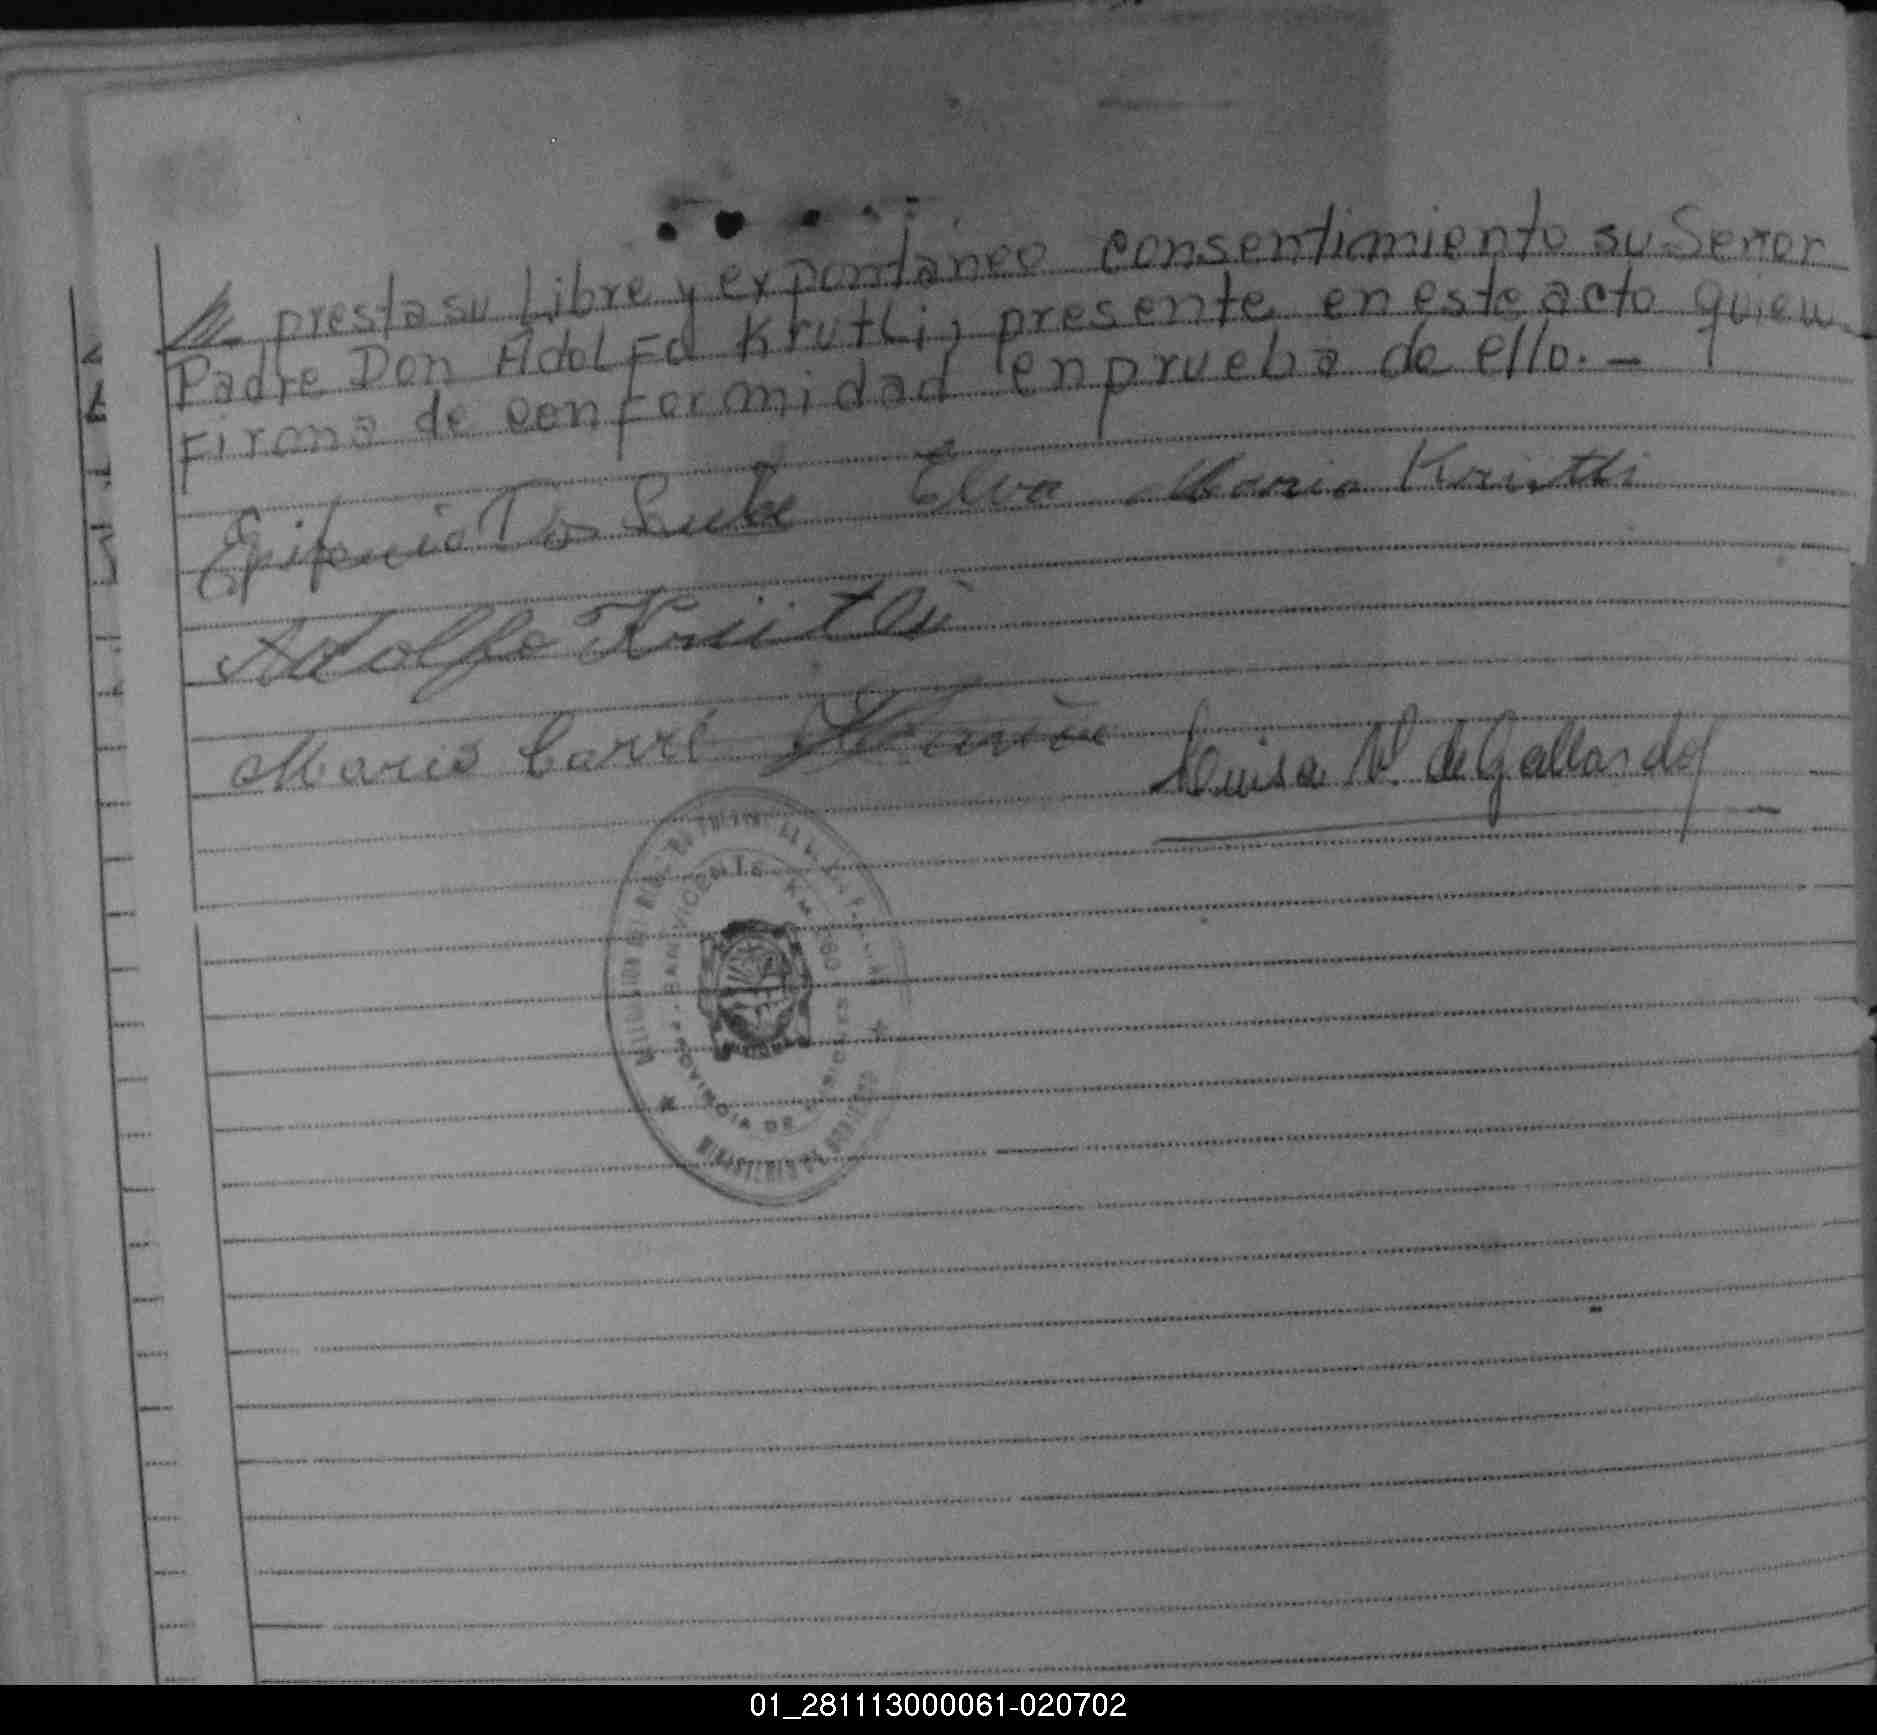 presta su Libre y expontaneo consentimiento su Señor
Padre Don Adolfo Krutli, presente en este acto quien
Firma de conformidad en prueba de ello.-
Elva Maria Krütli
Adolfo Krütli
Mario Carré
Luisa V. de Gallardo
SAN VICENTE KM.
PROVINCIA DE MISIONES
MINISTERIO DE GOBIERNO
01_281113000061-020702